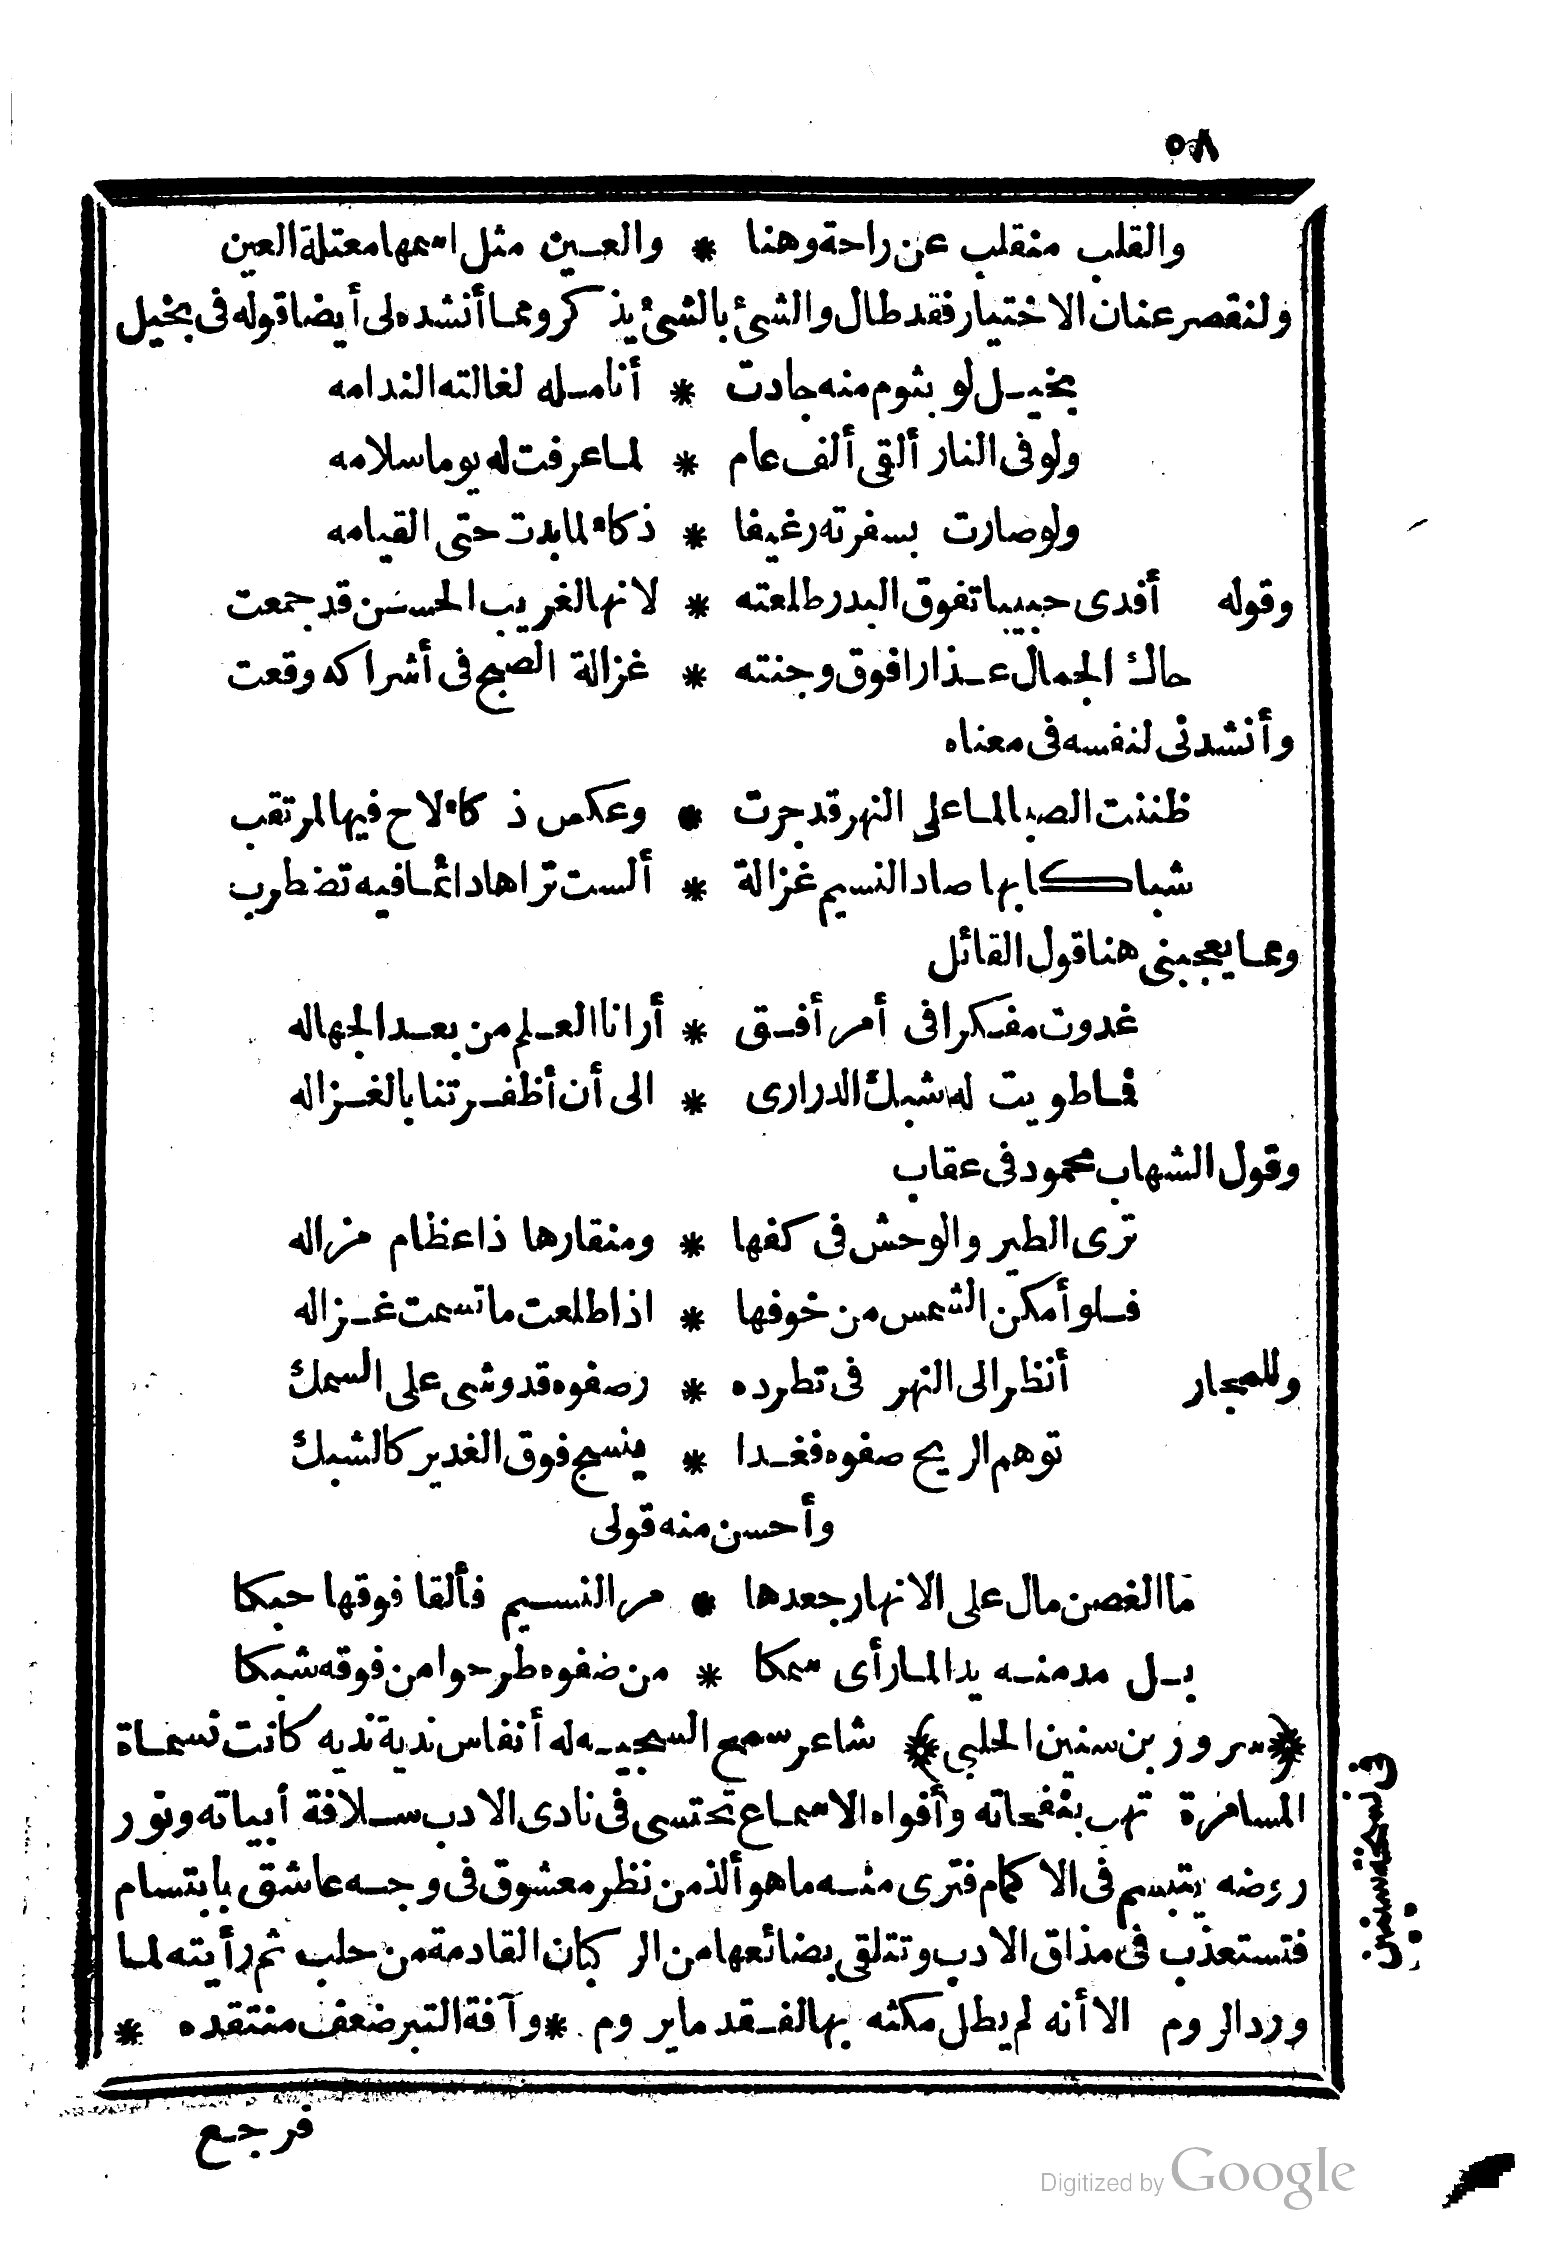 ٥٨
والقلب منقلب عن راحة وهنا * والعين مثل اسمها معتلة العين
ولنقصر عنان الاختيار فقد طال والشئ بالشئ يذكر ومما أنشده لى أيضا قوله فى بخيل
بخيل لو بثوم منه جادت * أنامله لغالته الندامه
ولو فى النار ألقى ألف عام * لما عرفت له يوما سلامه
ولو صارت بسفرته رغيفا * ذكاء لما بدت حتى القيامه
وقوله أفدى حبيبا تفوق البدر طلعته * لانها لغريب الحسن قد جمعت
حاك الجمال عذارا فوق وجنته * غزالة الصبح فى أشراكه وقعت
وأنشدنى لنفسه فى معناه
ظننت الصبا لما على النهر قد جرت * وعكس ذكاء لاح فيها لمرتقب
شباكا بها صاد النسيم غزالة * ألست تراها دائما فيه تضطرب
ومما يعجبنى هنا قول القائل
غدوت مفكرا فى أمر أفق * أرانا العلم من بعد الجهاله
فما طويت له شبك الدرارى * الى أن أظفرتنا بالغزاله
وقول الشهاب محمود فى عقاب
ترى الطير والوحش فى كفها * ومنقارها ذا عظام مزاله
فلو أمكن الشمس من خوفها * اذا طلعت ما تسمت غزاله
وللمجار أنظر الى النهر فى تطرده * رصفوه قد وشى على السمك
توهم الريح صفوه فغدا * ينسج فوق الغدير كالشبك
وأحسن منه قولى
ما الغصن مال على الانهار جعدها * مر النسيم فألقا فوقها حبكا
بل مد منه يدا لما رأى سمكا * من ضفوه طرحوا من فوقه شبكا
﴿سرور بن سنين الحلبى﴾ شاعر سمح السجيه له أنفاس ندية نديه كانت نسماة
المسامرة تهب بنفحاته وأفواه الاسماع تحتسى فى نادى الادب سلافة أبياته ونور
روضه يتبسم فى الاكمام فترى منه ما هو ألذ من نظر معشوق فى وجه عاشق بابتسام
فتستعذب فى مذاق الادب وتتلقى بضائعها من الركبان القادمة من حلب ثم رأيته لما
ورد الروم الا أنه لم يطل مكثه بها لفقد ما يروم * وآفة التبر ضعف منتقده *
فى نسخة سنين
فرجع
Digitized by Google